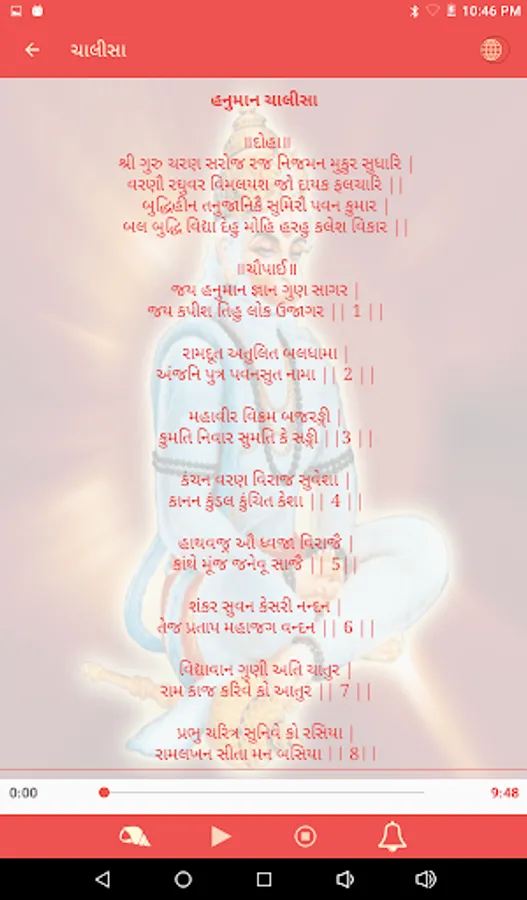 10:46 PM
ચાલીસા
હનુમાન ચાલીસા
॥દોહા॥
શ્રી ગુરુ ચરણ સરોજ રજ નિજમન મુકુર સુધારિ |
વરણૌ રઘુવર વિમલયશ જો દાયક ફલચારિ ||
બુદ્ધિહીન તનુજાનિકૈ સુમિરૌ પવન કુમાર |
બલ બુદ્ધિ વિદ્યા દેહુ મોહિ હરહુ કલેશ વિકાર ||
॥ચૌપાઈ॥
જય હનુમાન જ્ઞાન ગુણ સાગર |
જય કપીશ તિહુ લોક ઉજાગર || 1 ||
રામદૂત અતુલિત બલધામા |
અંજનિ પુત્ર પવનસુત નામા || 2 ||
મહાવીર વિક્રમ બજરઙ્ગી |
કુમતિ નિવાર સુમતિ કે સઙ્ગી ||3 ||
કંચન વરણ વિરાજ સુવેશા |
કાનન કુંડલ કુંચિત કેશા || 4 ||
હાથવજ્ર ઔ ધ્વજા વિરાજૈ |
કાંથે મૂંજ જનેવૂ સાજૈ || 5||
શંકર સુવન કેસરી નન્દન |
તેજ પ્રતાપ મહાજગ વન્દન || 6 ||
વિદ્યાવાન ગુણી અતિ ચાતુર |
રામ કાજ કરિવે કો આતુર || 7 ||
પ્રભુ ચરિત્ર સુનિવે કો રસિયા |
રામલખન સીતા મન બસિયા || 8||
0:00
9:48